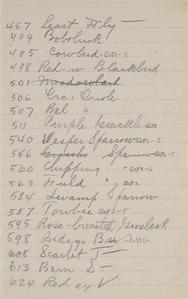 467 Least Fly —
494 Bobolink
495 Cowbird
498 Red-w Blackbird
501 Meadowlark
506 Orc. Oriole
507 Bal "
511 Purple Grackle
540 Vesper Sparrow
546 Sparrow
560 Chipping "
563 Field "
584 Swamp Sparrow
587 Towhee
595 Rose-breasted Grosbeak
598 Indigo B
608 Scarlet T
613 Barn S
624 Red ey V